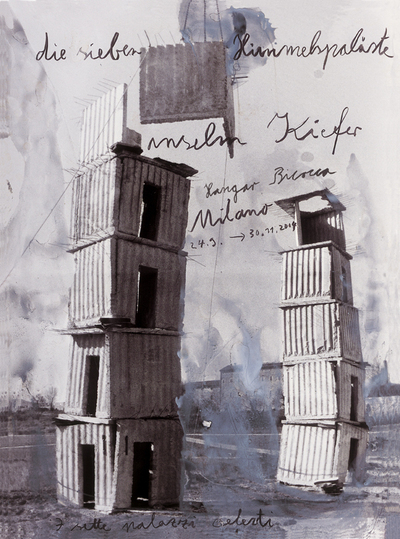 die sieben Himmelspaläste
anselm Kiefer
Hangar Bicocca
Milano
24.9. → 30.11.2014
7 sette palazzi celesti